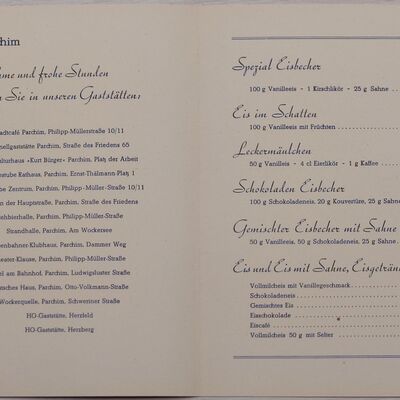 him
me und frohe Stunden
n Sie in unseren Gaststätten:
adtcafé Parchim, Philipp-Müllerstraße 10/11
nellgaststätte Parchim, Straße des Friedens 65
ulturhaus »Kurt Bürger« Parchim, Platz der Arbeit
estube Rathaus, Parchim, Ernst-Thälmann-Platz 1
he Zentrum, Parchim, Philipp-Müller-Straße 10/11
n der Hauptstraße, Parchim, Straße des Friedens
ehbierhalle, Parchim, Philipp-Müller-Straße
Strandhalle, Parchim, Am Wockersee
enbahner-Klubhaus, Parchim, Dammer Weg
eater-Klause, Parchim, Philipp-Müller-Straße
el am Bahnhof, Parchim, Ludwigsluster Straße
tsches Haus, Parchim, Otto-Volkmann-Straße
Wockerquelle, Parchim, Schweriner Straße
HO-Gaststätte, Herzfeld
HO-Gaststätte, Herzberg
Spezial Eisbecher
100 g Vanilleeis - 1 Kirschlikör - 25 g Sahne . .
Eis im Schatten
100 g Vanilleeis mit Früchten . . . . . . . . . .
Leckermäulchen
50 g Vanilleis - 4 cl Eierlikör - 1 g Kaffee . .
Schokoladen Eisbecher
100 g Schokoladeneis, 20 g Kouvertüre, 25 g Sahne
Gemischter Eisbecher mit Sahne
50 g Vanilleeis, 50 g Schokoladeneis, 25 g Sahne .
Eis und Eis mit Sahne, Eisgeträn
Vollmilcheis mit Vanillegeschmack . . . . . . .
Schokoladeneis . . . . . . . . . .
Gemischtes Eis . . . . . . . . . .
Eisschokolade . . . . . . . . . .
Eiscafé . . . . . . . . . .
Vollmilcheis 50 g mit Selter . . . . . . . . . .